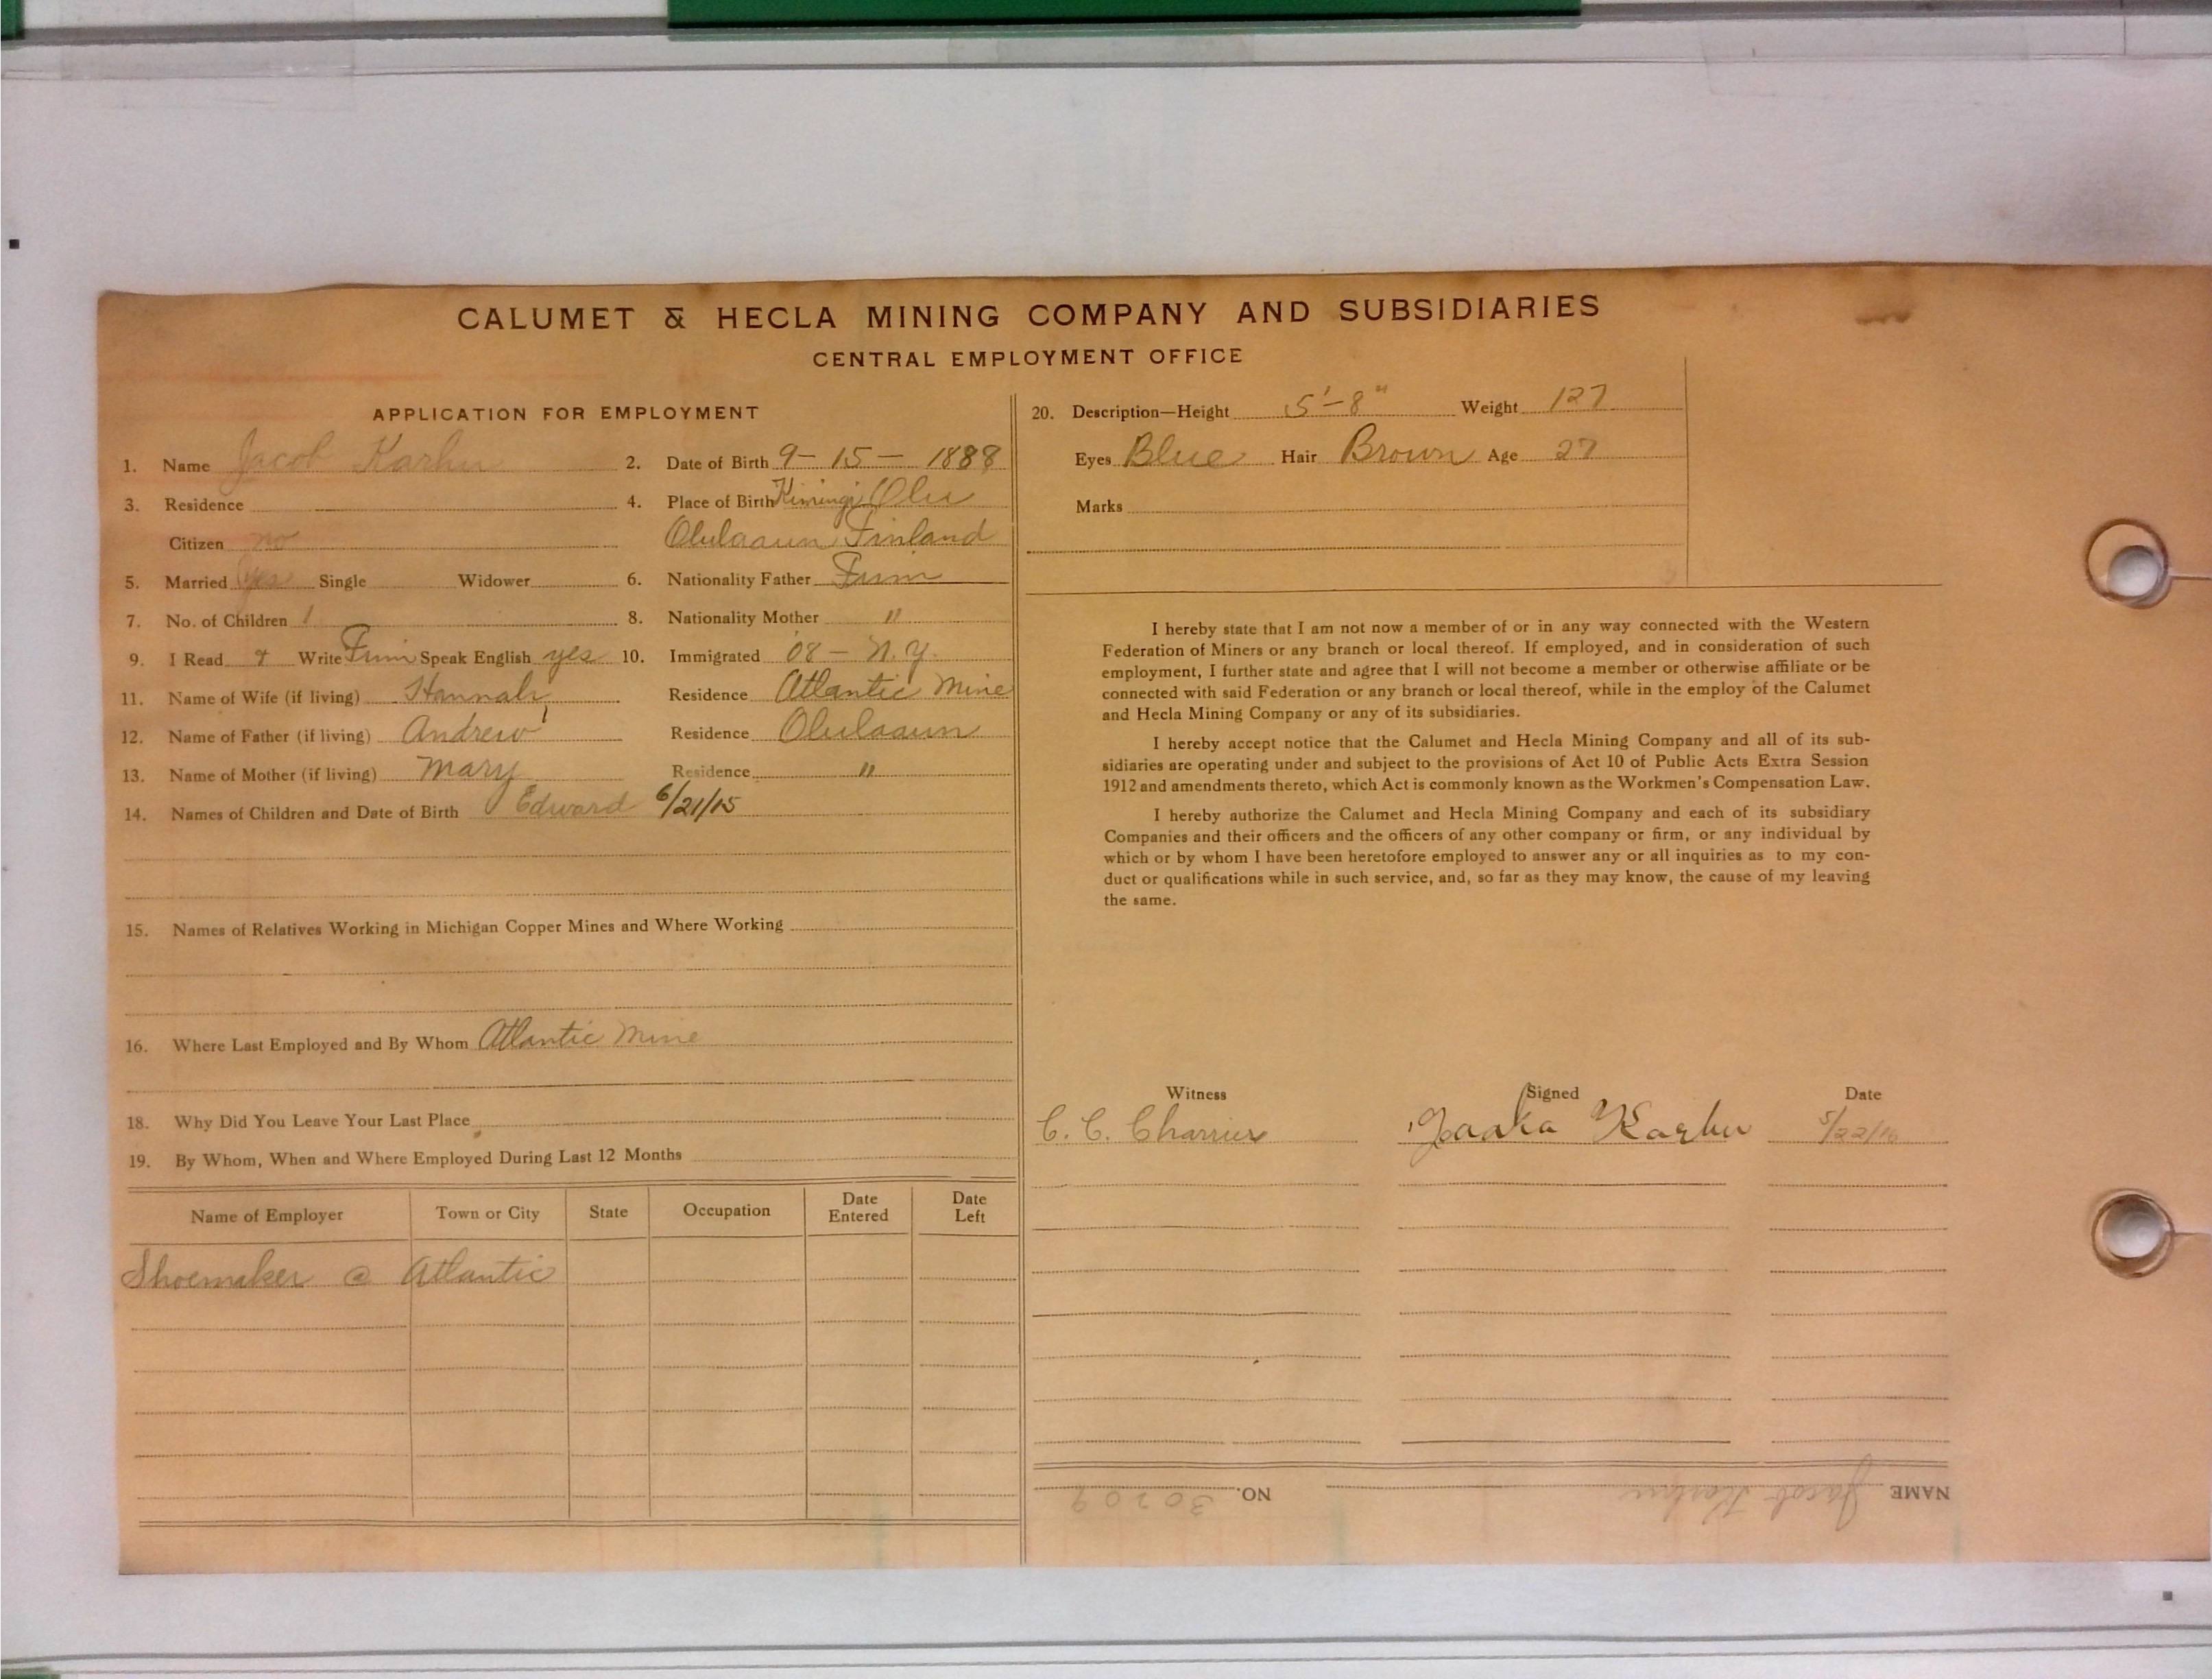 CALUMET & HECLA MINING COMPANY AND SUBSIDIARIES
CENTRAL EMPLOYMENT OFFICE
APPLICATION FOR EMPLOYMENT
1. Name Jacob Karhu 2. Date of Birth 9-15-1888
3. Residence 4. Place of Birth Kimingi Olu
Citizen no Olulaaun Finland
5. Married yes Single Widower 6. Nationality Father Finn
7. No. of Children 1 8. Nationality Mother "
9. I Read & Write Finn Speak English yes 10. Immigrated '08 - N.Y.
11. Name of Wife (if living) Hannah Residence Atlantic Mine
12. Name of Father (if living) Andrew Residence Olulaaun
13. Name of Mother (if living) Mary Residence "
14. Names of Children and Date of Birth Edward 6/21/15
15. Names of Relatives Working in Michigan Copper Mines and Where Working
16. Where Last Employed and By Whom Atlantic Mine
18. Why Did You Leave Your Last Place
19. By Whom, When and Where Employed During Last 12 Months
Name of Employer Town or City State Occupation Date Entered Date Left
Shoemaker @ Atlantic
20. Description—Height 5'-8" Weight 127
Eyes Blue Hair Brown Age 27
Marks
I hereby state that I am not now a member of or in any way connected with the Western
Federation of Miners or any branch or local thereof. If employed, and in consideration of such
employment, I further state and agree that I will not become a member or otherwise affiliate or be
connected with said Federation or any branch or local thereof, while in the employ of the Calumet
and Hecla Mining Company or any of its subsidiaries.
I hereby accept notice that the Calumet and Hecla Mining Company and all of its sub-
sidiaries are operating under and subject to the provisions of Act 10 of Public Acts Extra Session
1912 and amendments thereto, which Act is commonly known as the Workmen's Compensation Law.
I hereby authorize the Calumet and Hecla Mining Company and each of its subsidiary
Companies and their officers and the officers of any other company or firm, or any individual by
which or by whom I have been heretofore employed to answer any or all inquiries as to my con-
duct or qualifications while in such service, and, so far as they may know, the cause of my leaving
the same.
Witness Signed Date
C. C. Charrier Jaaka Karhu 5/22/16
NAME Jacob Karhu NO. 30209